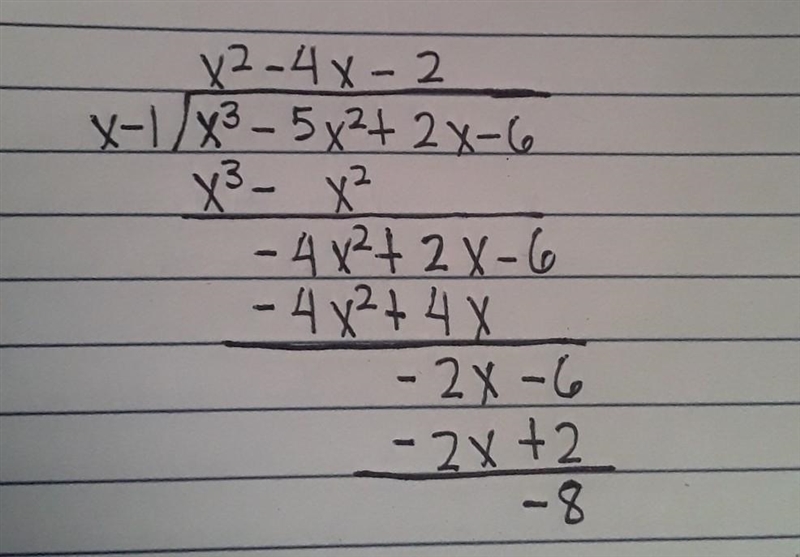 x² - 4x - 2
x-1 / x³ - 5x² + 2x - 6
x³ - x²
- 4x² + 2x - 6
- 4x² + 4x
- 2x - 6
- 2x + 2
- 8